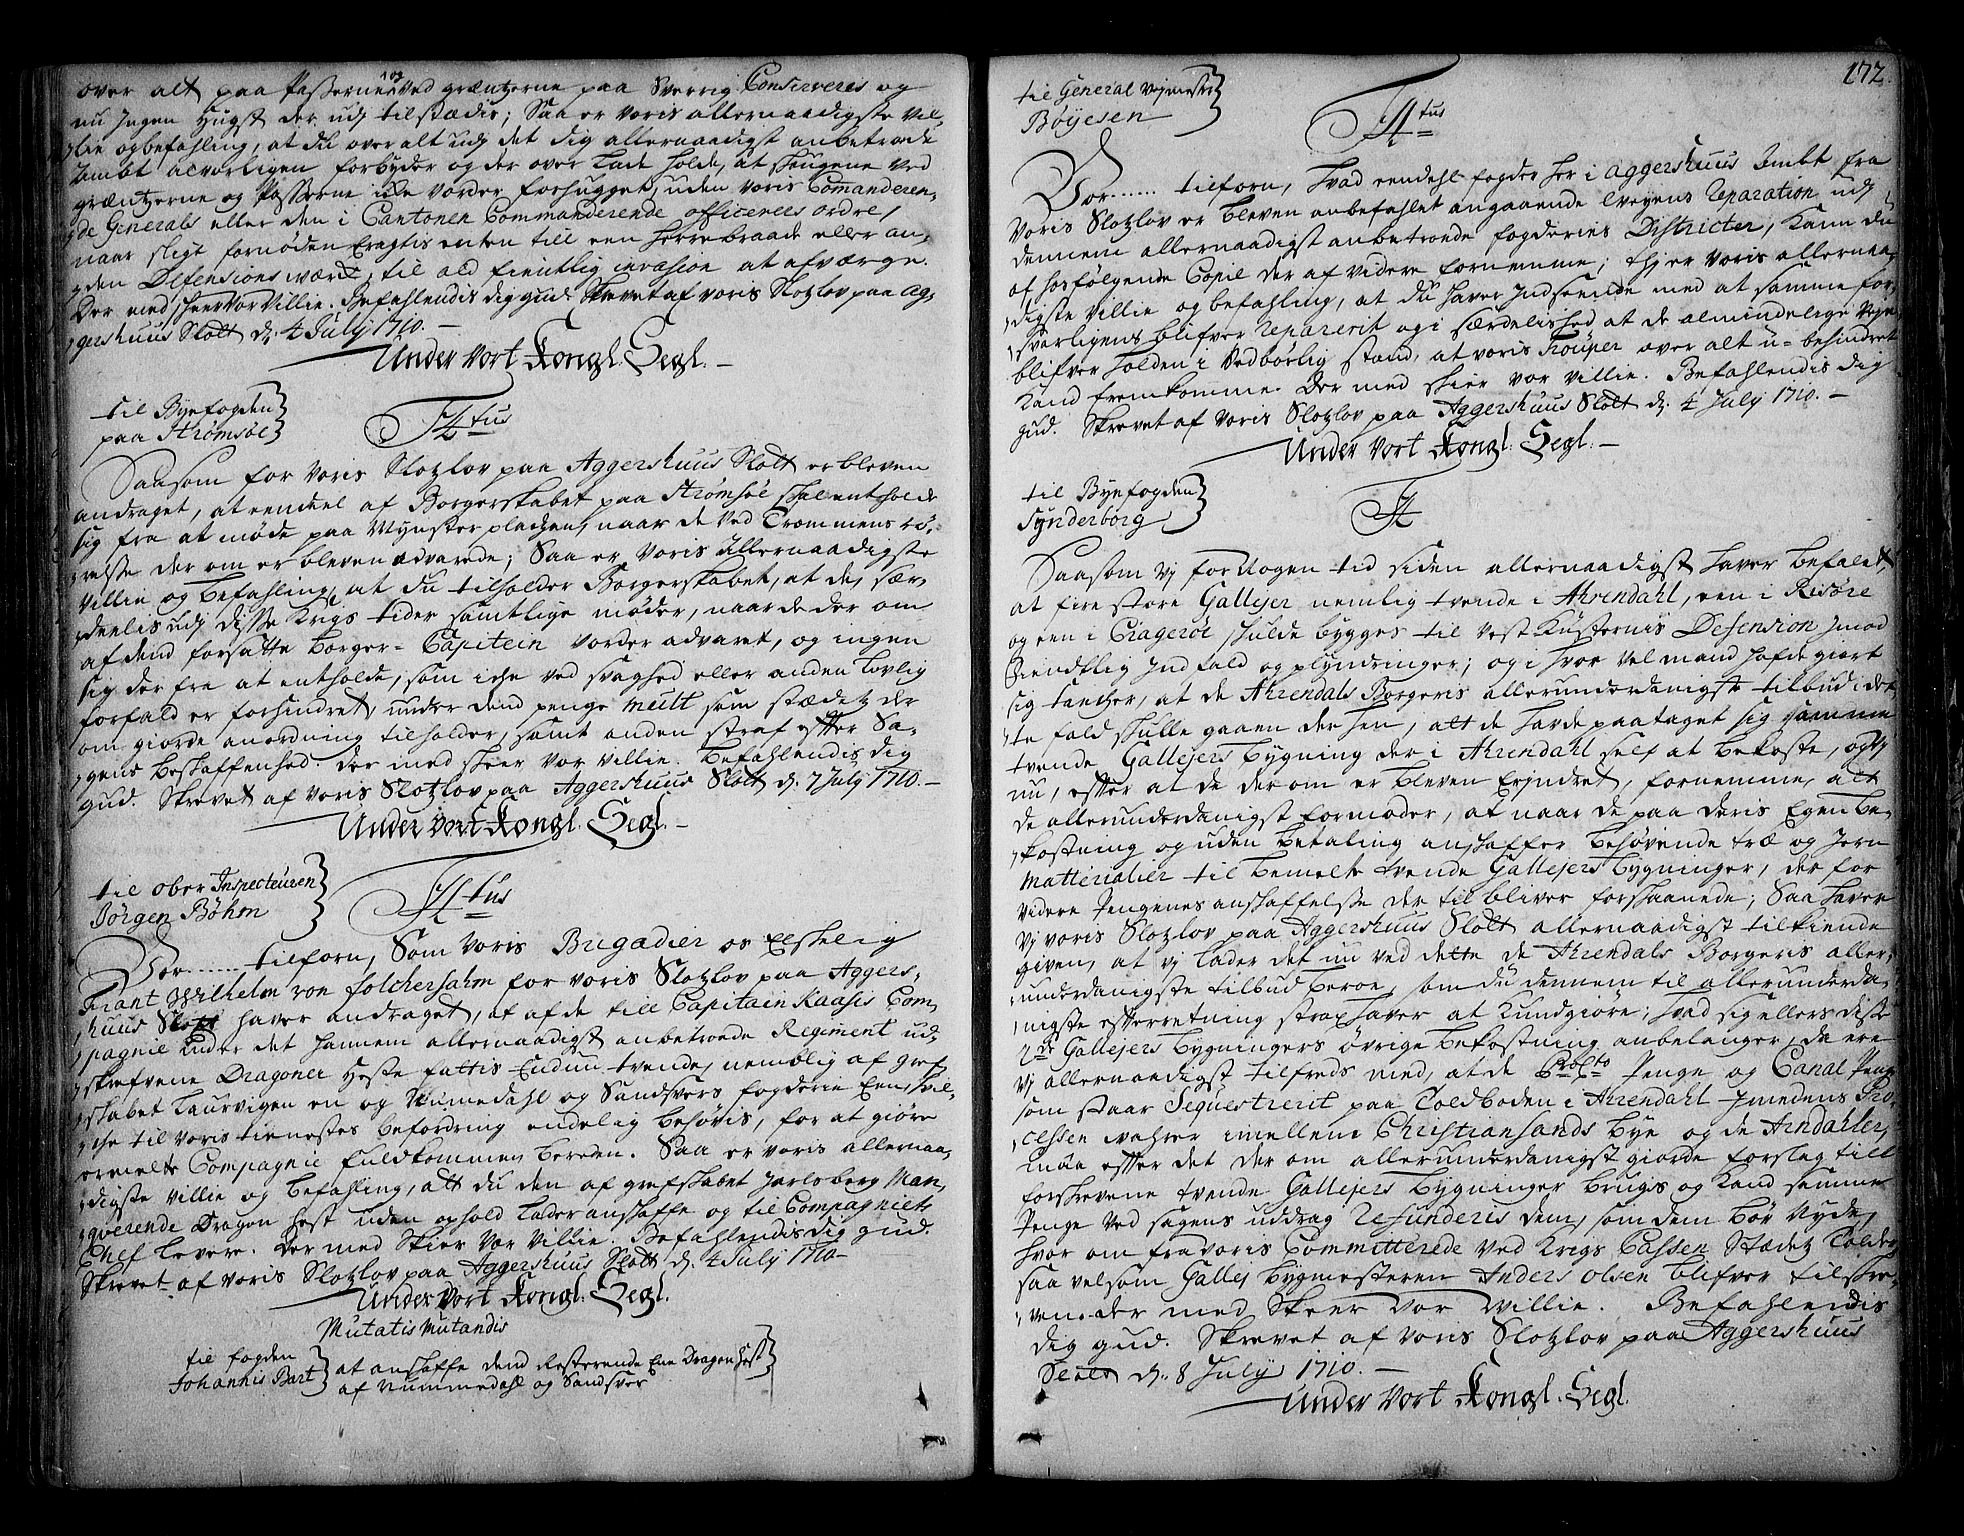 over alt paa Passerne og ved grentzerne paa Sverrig Conserveres og
nu Ingen Hugst der udj tilstædis; Saa er Voris allernaadigste Vil-
lie og befahling, at du over alt udj det dig allernaadigst anbetroede
Ambt alvorligen forbyder og der over lade holde, at skougene ved
grentzerne og Passerne icke vorder forhugget, uden Voris Comanderen-
de Generals eller den i Cantonen Commanderende officerers ordre,
naar sligt fornøden eragtis enten till een Herrebraade eller an-
den Defensions werck, til ald fientlig invasion at afværge.
Der med skeer Vor Villie. Befahlendis dig gud. Skrevet af voris Slotzlov paa Ag-
gershuus Slott d. 4 July 1710. —
Under Vort Kongl. Segl. —
til Byefogden
paa Strømsøe
F4tus
Saasom for Voris Slotzlov paa Aggershuus Slott er bleven
andraget, at eendeel af Borgerskabet paa Strømsøe skal entholde
sig fra at møde paa Mynsterpladzen, naar de ved Trommens rø-
relse der om er bleven advarede; Saa er Voris Allernaadigste
Villie og Befahling, at du tilholder Borgerskabet, at de, sær-
deelis udj disse Krigs tider samtlige møder, naar de der om
af dend forsatte Borger-Capitein vorder advaret, og ingen
sig der fra at entholde, som icke ved svaghed eller anden Lovlig
forfald er forhindret, under dend penge Mult som stædetz der
om giorde anordning tilholder, samt anden straf efter Sa-
gens beskaffenhed. der med skeer Vor Villie. Befahlendis dig
gud. Skrevet af Voris Slotzlov paa Aggershuus Slott d. 7 July 1710. —
Under Vort Kongl. Segl. —
til ober Inspecteuren
Jørgen Bøhm
F4 tus
Vor...... tilforn, Som Voris Brigadier os Elskelig
Frant Wilhelm von folchersahm for voris Slotzlov paa Aggers-
huus Slott haver andraget, at af de till Capitain Kaasis Com-
pagnie under det hannem allernaadigst anbetroede Regiment ud-
skrefvene Dragoner Heste fattis Endnu tvende, nemblig af gref-
skabet Laurvigen en og Nummedahl og Sandsvers fogderie Een, hvil-
che til voris tienestes befordring endelig behøvis, for at giøre
ermelte Compagnie fuldkommen bereden. Saa er voris allernaa-
digste Villie og befahling, att du den af grefskabet Jarlsberg Man-
qverende Dragon Hest uden ophold lader anskaffe og til Compagniets
Chef levere. Der med Skier Vor Villie. Befahlendis dig gud.
Skrevet af voris Slotzlov paa Aggershuus Slott d. 4 July 1710 —
Under Vort Kongl. Segl.
Mutatis Mutandis
til fogden
Johannis Bart
at anskaffe dend Resterende Een Dragon Hest
af Nummedahl og Sandsver
172.
til General Vejmester
Bøyesen
F4tus
Vor...... tilforn, Hvad eendeel fogder her i Aggershuus Ambt fra
Voris Slotzlov er bleven anbefahlet angaaende veyens Reparation udj
dennem allernaadigst anbetroede fogderies Districter, Kand du
af hosfølgende Copie der af videre fornemme; thj er Voris allernaa-
digste Villie og befahling, at du haver Indseende med at samme for-
svarligens blifver Reparerit og i særdelished at de almindelige Veje
blifver holden i Vedbørlig stand, at voris Trouper over alt u-behindret
Kand fremkomme. Der med skier vor Villie. Befahlendis dig
gud. Skrevet af Voris Slotzlov paa Aggershuus Slott d. 4 July 1710. —
Under Vort Kongl. Segl. —
til Byefogden
Synderborg
F4
Saasom Vj for Nogen tid siden allernaadigst haver befalet,
at fire store Gallejer nemlig tvende i Ahrendahl, een i Risøre
og een i Cragerøe skulde bygges til Vest Kusternis Defension Imod
Fiendtlig Indfald og plyndringer; og i hvor vel mand hafde giort
sig tancher, at de Ahrendals Borgeris allerunderdanigste tilbud i det-
te fald skulle gaaen der hen, att de hafde paataget sig samme
tvende Gallejers bygning der i Ahrendahl self at bekoste, og vj
nu, efter at de der om er bleven Erindret, fornemme, att
de allerunderdanigst formoder, at naar de paa deris Egen be-
kostning og uden betaling anskaffer behøvende træ og Jern
Matterialier til bemelte tvende Gallejers bygninger, de for
videre Pengenes anskaffelse der til bliver forskaanede; Saa haver
Vj voris Slotzlov paa Aggershuus Slott allernaadigst tilkiende
given, at vj lader det nu ved dette de Ahrendals Borgeris aller-
underdanigste tilbud beroe, som du dennem til allerunderda-
nigste efterretning strax haver at kundgiøre; hvad sig ellers disse
2de Gallejers bygningers øvrige bekostning anbelanger, da ere
Vj allernaadigst tilfreds med, at de Penge og Canal Penge
som staar Sequestrerit paa Toldboden i Ahrendahl Imedens Pro-
cessen wahrer imellem Christiansands bye og de Arndahler,
maa efter det der om allerunderdanigst giorde forslag till
forskrevene tvende Gallejers bygninger brugis og kand samme
Penge ved sagens uddrag refunderis dem, som dem bør Nyde,
hvor om fra voris Committerede ved Krigs Cassen Stædetz Tolder
saa velsom Gallej bygmesteren Anders Olsen blifver tilskre-
ven. der med Skeer Vor Willie. Befahlendis
dig gud. Skrevet af voris Slotzlov paa Aggershuus
Slott d. 8 July 1710. —
Under Vort Kongl. Segl.